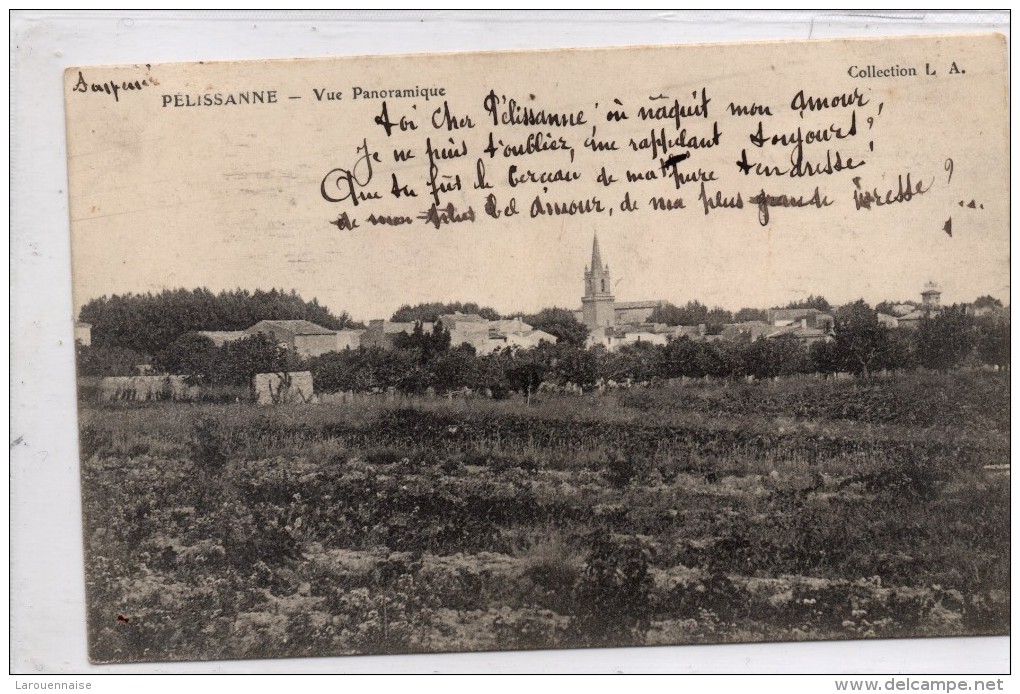 PÉLISSANNE — Vue Panoramique
Collection L A.
toi cher Pélissanne où nâquit mon amour,
Je ne puis t'oublier, me rappelant toujours,
Que tu fus le berceau de ma pure tendresse
de mon plus bel amour, de ma plus grande ivresse !...
Larouennaise
© delcampe.net